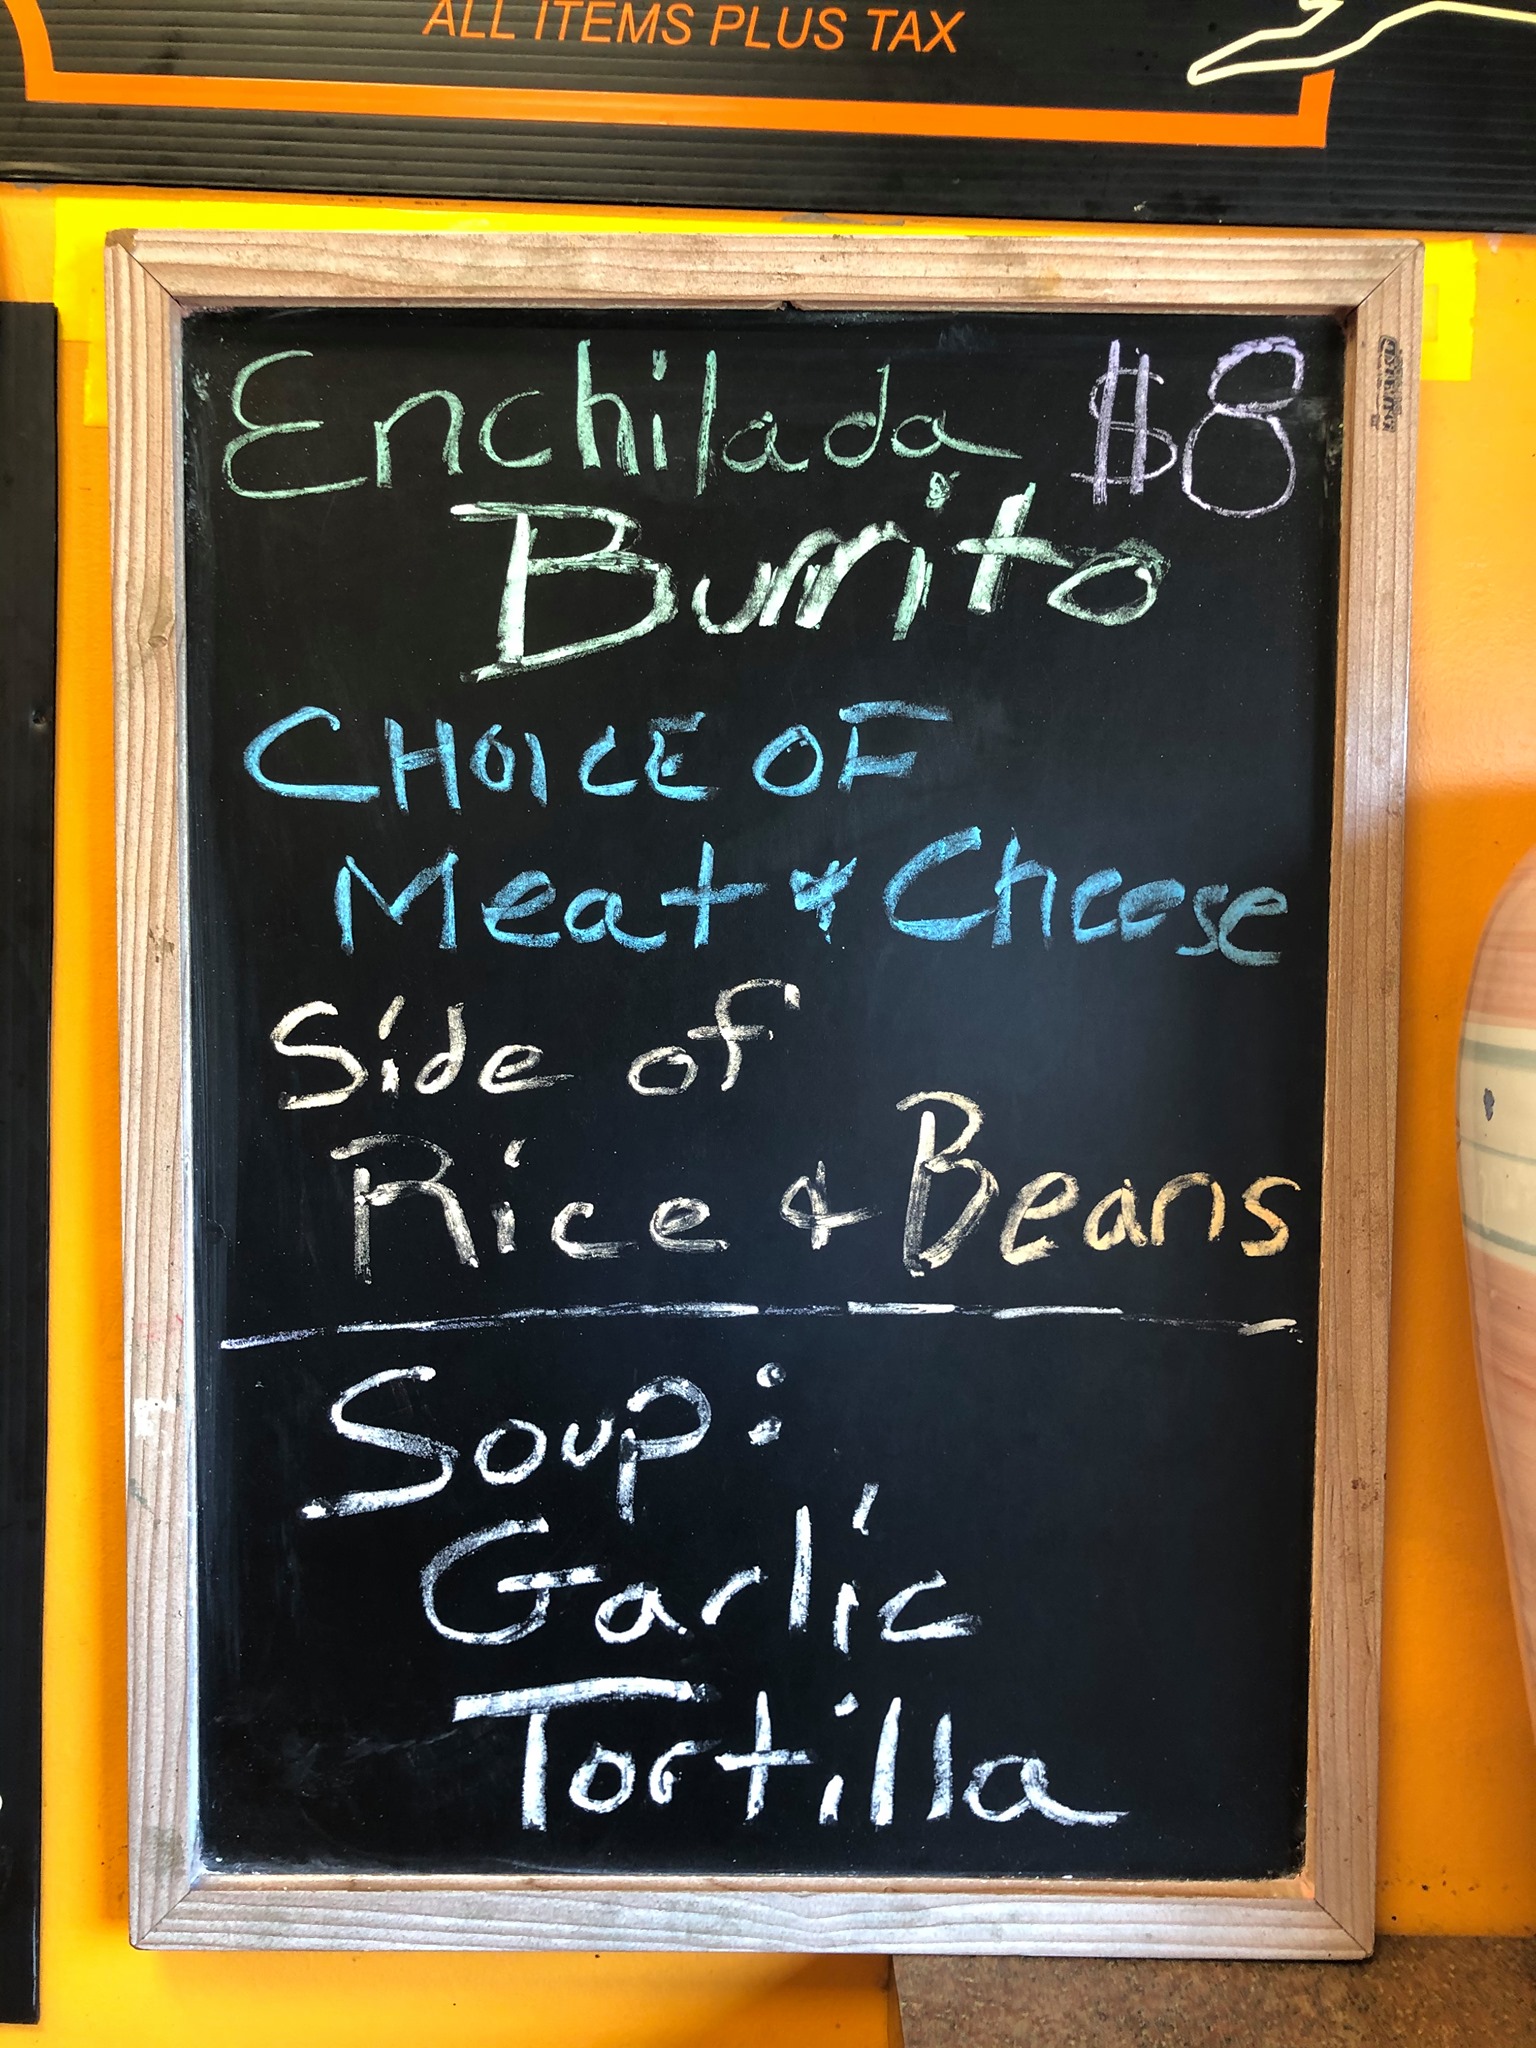 ALL ITEMS PLUS TAX
Enchilada $8
Burrito
CHOICE OF
Meat & Cheese
Side of
Rice & Beans
Soup:
Garlic
Tortilla